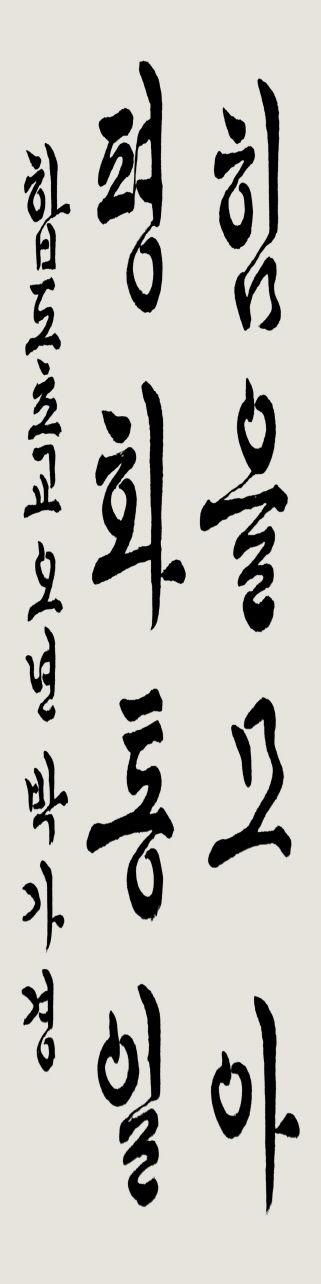 힘을모아
평화통일
합도초교 오년 박가경